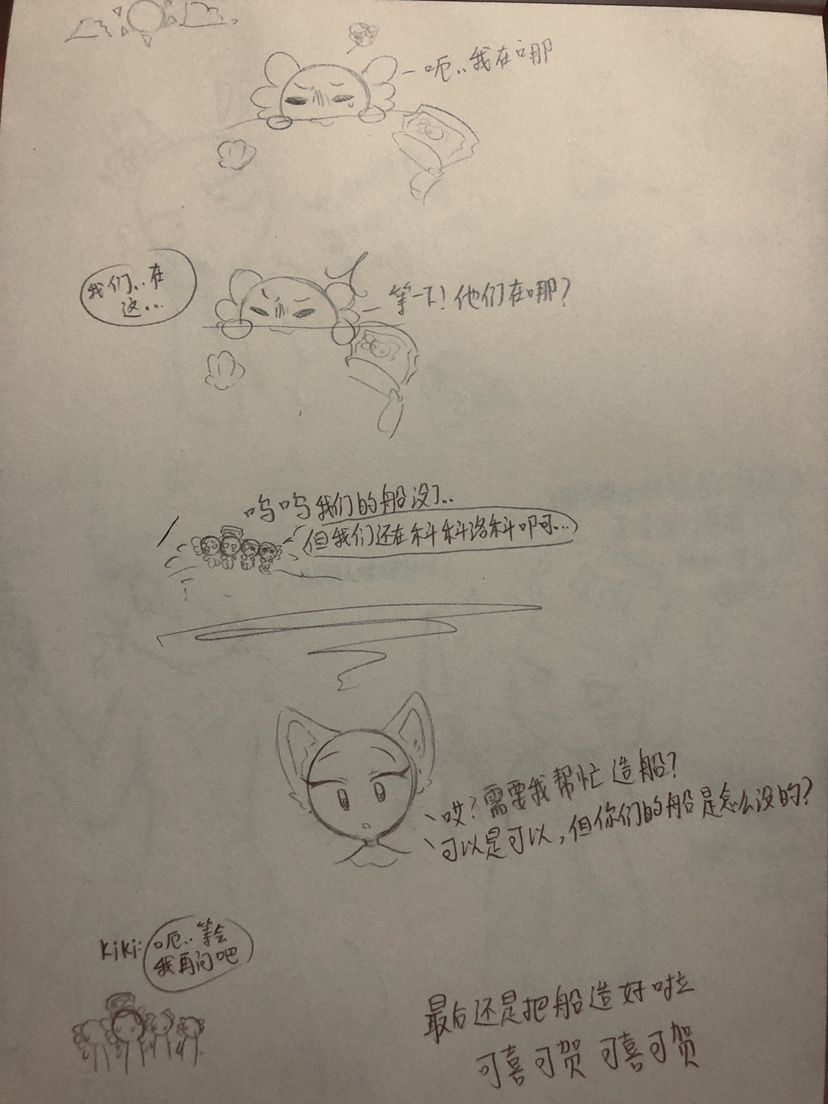 呃..我在哪
我们..在
这...
等一下!他们在哪?
呜呜我们的船没了..
但我们还在科科洛科叩可...
哎?需要我帮忙造船?
可以是可以,但你们的船是怎么没的?
KiKi:
呃..等会
我再问吧
最后还是把船造好啦
可喜可贺 可喜可贺